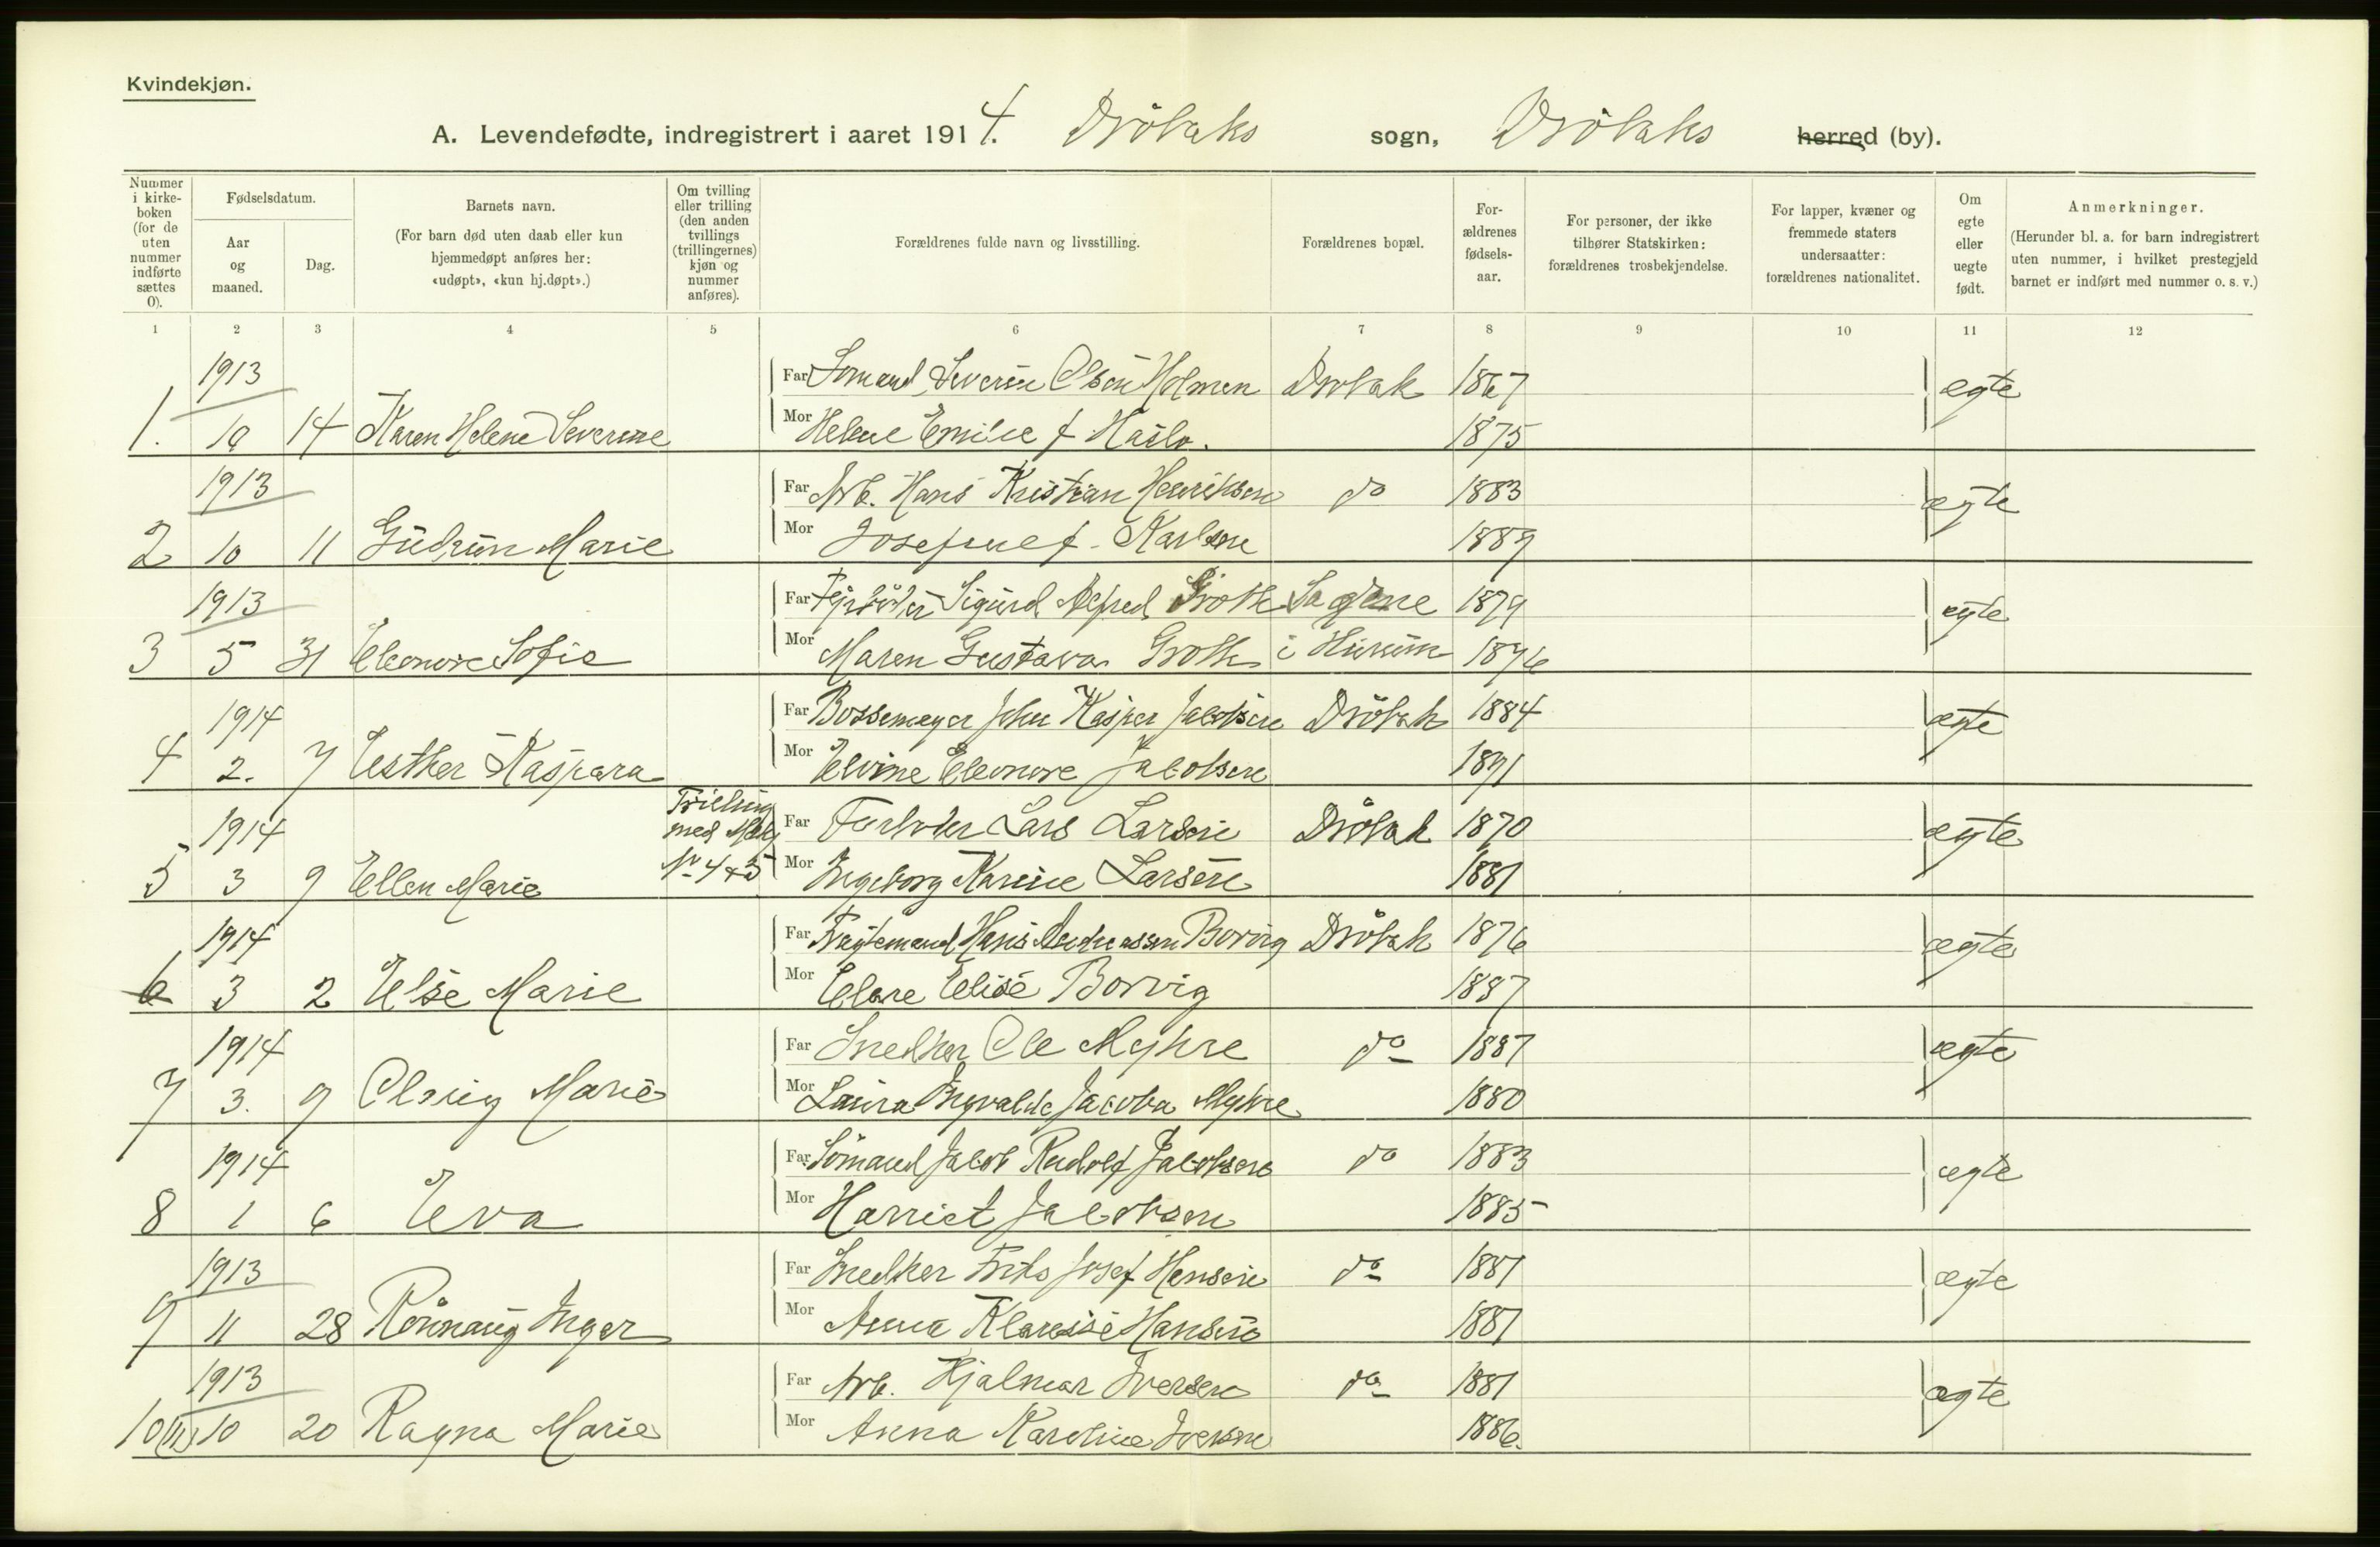 Kvindekjøn.
A. Levendefødte, indregistrert i aaret 1914. Drøbaks sogn, Drøbaks herred (by).
Nummer i kirke-boken (for de uten nummer indførte sættes 0).
Fødselsdatum.
Aar og maaned.
Dag.
Barnets navn.
(For barn død uten daab eller kun hjemmedøpt anføres her: «udøpt», «kun hj.døpt».)
Om tvilling eller trilling (den anden tvillings (trillingernes) kjøn og nummer anføres).
Forældrenes fulde navn og livsstilling.
Forældrenes bopæl.
For-ældrenes fødsels-aar.
For personer, der ikke tilhører Statskirken: forældrenes trosbekjendelse.
For lapper, kvæner og fremmede staters undersaatter: forældrenes nationalitet.
Om egte eller uegte født.
Anmerkninger.
(Herunder bl. a. for barn indregistrert uten nummer, i hvilket prestegjeld barnet er indført med nummer o. s. v.)
1 2 3 4 5 6 7 8 9 10 11 12
1913 Far Sømand Severin Olsen Holmen Drøbak 1867 ægte
1. 10 14 Karen Helene Severine Mor Helene Emilie f Haslo. 1875
1913 Far Arb. Hans Kristian Henriksen do 1883 ægte
2 10 11 Gudrun Marie Mor Josefine f. Karlsen 1889
1913 Far Sigurd Alfred Groth Sagene 1879 egte
3 5 31 Eleonore Sofie Mor Maren Gustava Groth i Hurum 1876
1914 Far Bossemager John Kasper Jacobsen Drøbak 1884 ægte
4 2. 7 Esther Kaspara Mor Elvine Eleonore Jacobsen 1891
1914 Trilling med Far Lars Larsen Drøbak 1870 ægte
5 3 9 Ellen Marie No 4 & 5 Mor Ingeborg Karine Larsen 1881
1914 Far Hans Andreassen Borvig Drøbak 1876 ægte
6 3 2 Else Marie Mor Elise Borvig 1887
1914 Far Snedker Ole Myhre do 1887 ægte
7 3. 9 Marie Mor Laura Ingvalda Jacoba Myhre 1880
1914 Far Sømand Jacob Rudolf Jacobsen do 1883 ægte
8 1 6 Eva Mor Harriet Jacobsen 1885
1913 Far Snedker Frits Josef Hansen do 1881 ægte
9 11 28 Rønnaug Inger Mor Anna Klarisse Hansen 1881
1913 Far Arb. Hjalmar Iversen do 1881 ægte
10(11) 10 20 Ragna Marie Mor Anna Karoline Iversen 1886.